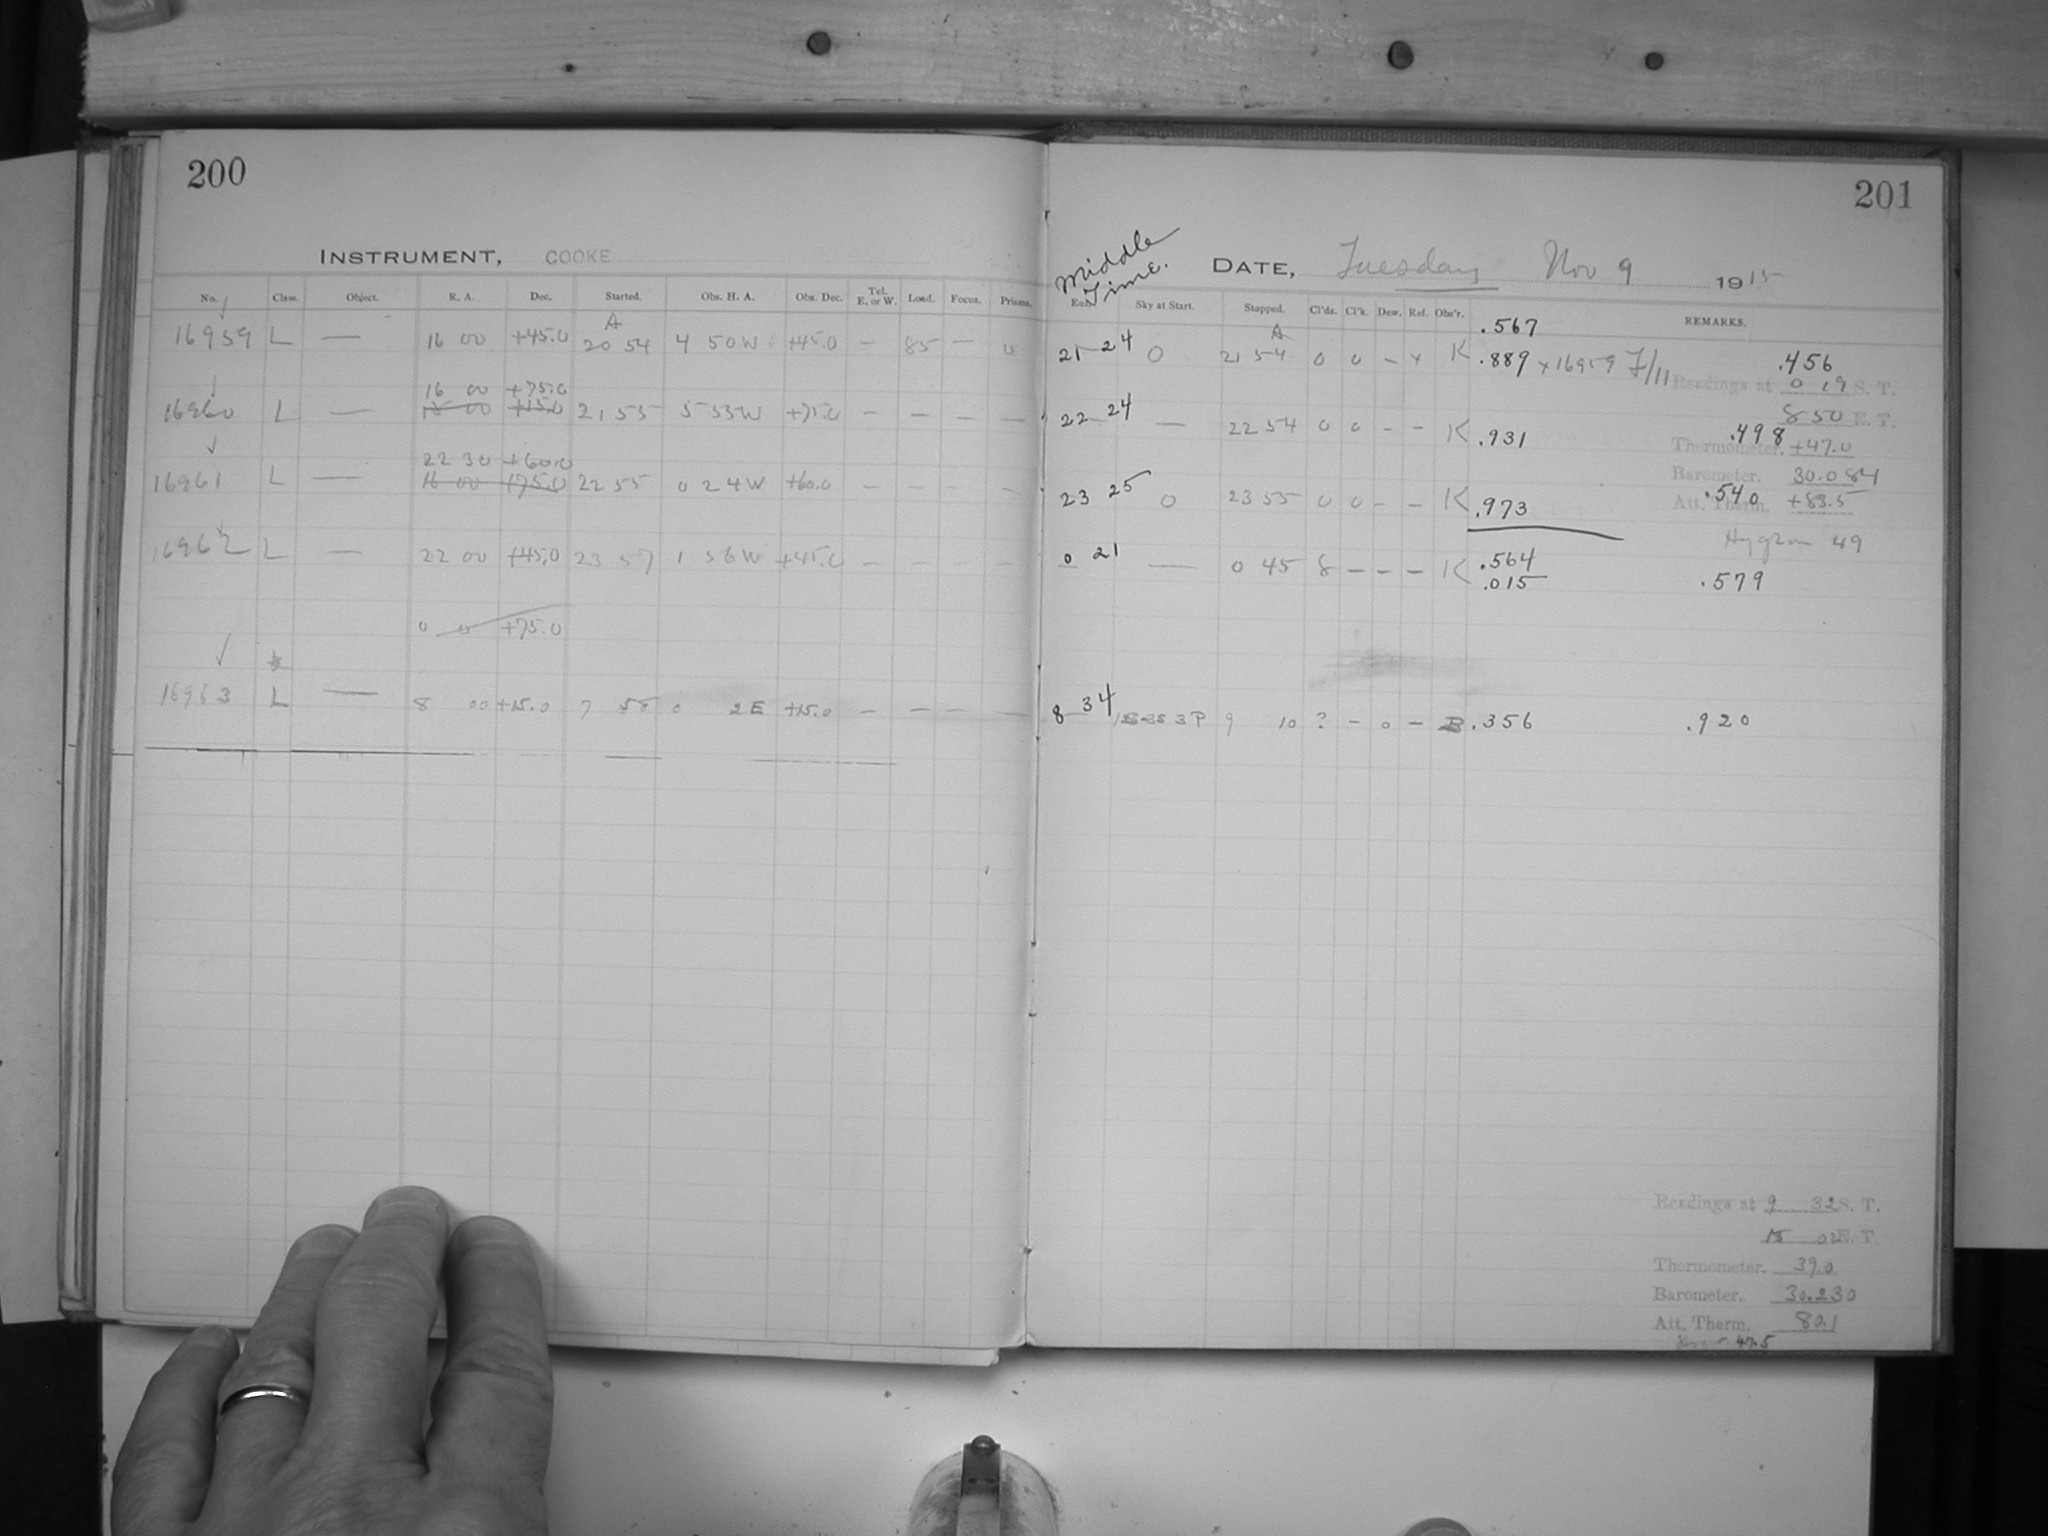 200
INSTRUMENT, COOKE
No. Class. Object. R. A. Dec. Started. Obs. H. A. Obs. Dec. Tel. E. or W. Load. Focus. Prisms.
A
16959 L — 16 00 +45.0 20 54 4 50 W +45.0 — 85 — 0
16 00 +75.0
16960 L — 18 00 +15.0 21 55 5 53 W +75.0 — — — —
22 30 +60.0
16961 L — 16 00 +75.0 22 55 0 24 W +60.0 — — — —
16962 L — 22 00 +45.0 23 57 1 56 W +45.0 — — — —
0 0 +75.0
16963 L — 8 00 +15.0 7 58 0 2 E +15.0 — — — —
201
Middle Time.
DATE, Tuesday Nov 9 1915
Exp. Sky at Start. Stopped. Cl'ds. Cl'k. Dew. Ref. Obs'r. REMARKS.
.567
A
21 24 0 21 54 0 0 – x K .889 x 16959 F/11 .456
Readings at 0 19 S. T.
8 50 E. T.
22 24 — 22 54 0 0 – – K .931 .498
Thermometer. +47.0
Barometer. 30.084
23 25 0 23 55 0 0 – – K .973 .540
Att. Therm. +83.5
Hygrom 49
0 21 — 0 45 8 – – – K .564
.015 .579
8 34 3 P 9 10 ? – 0 – B .356 .920
Readings at 9 32 S. T.
15 02 E. T.
Thermometer. 39.0
Barometer. 30.230
Att. Therm. 80.1
47.5